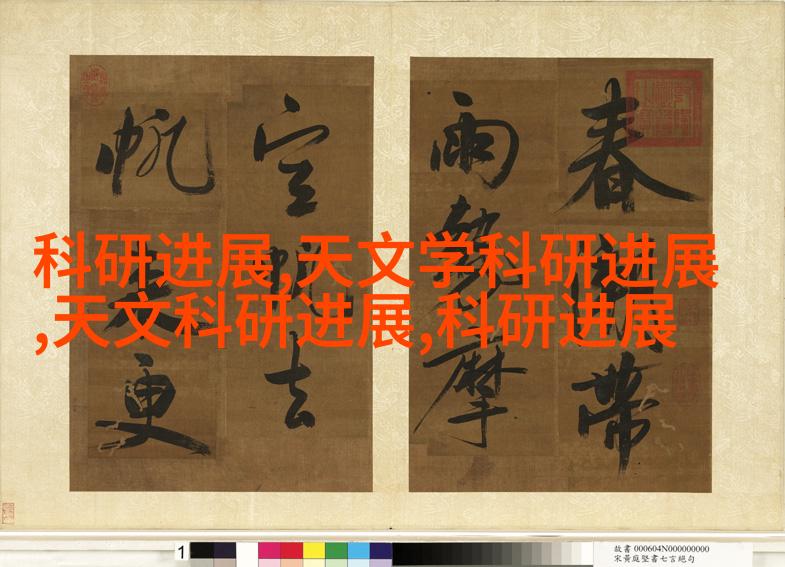 科研进展,天文学科研进展
,天文科研进展,科研进展
春 帶
雨勢摩
空帆去
帆來更
1
故書 000604N000000000
宋黃庭堅書七言絕句